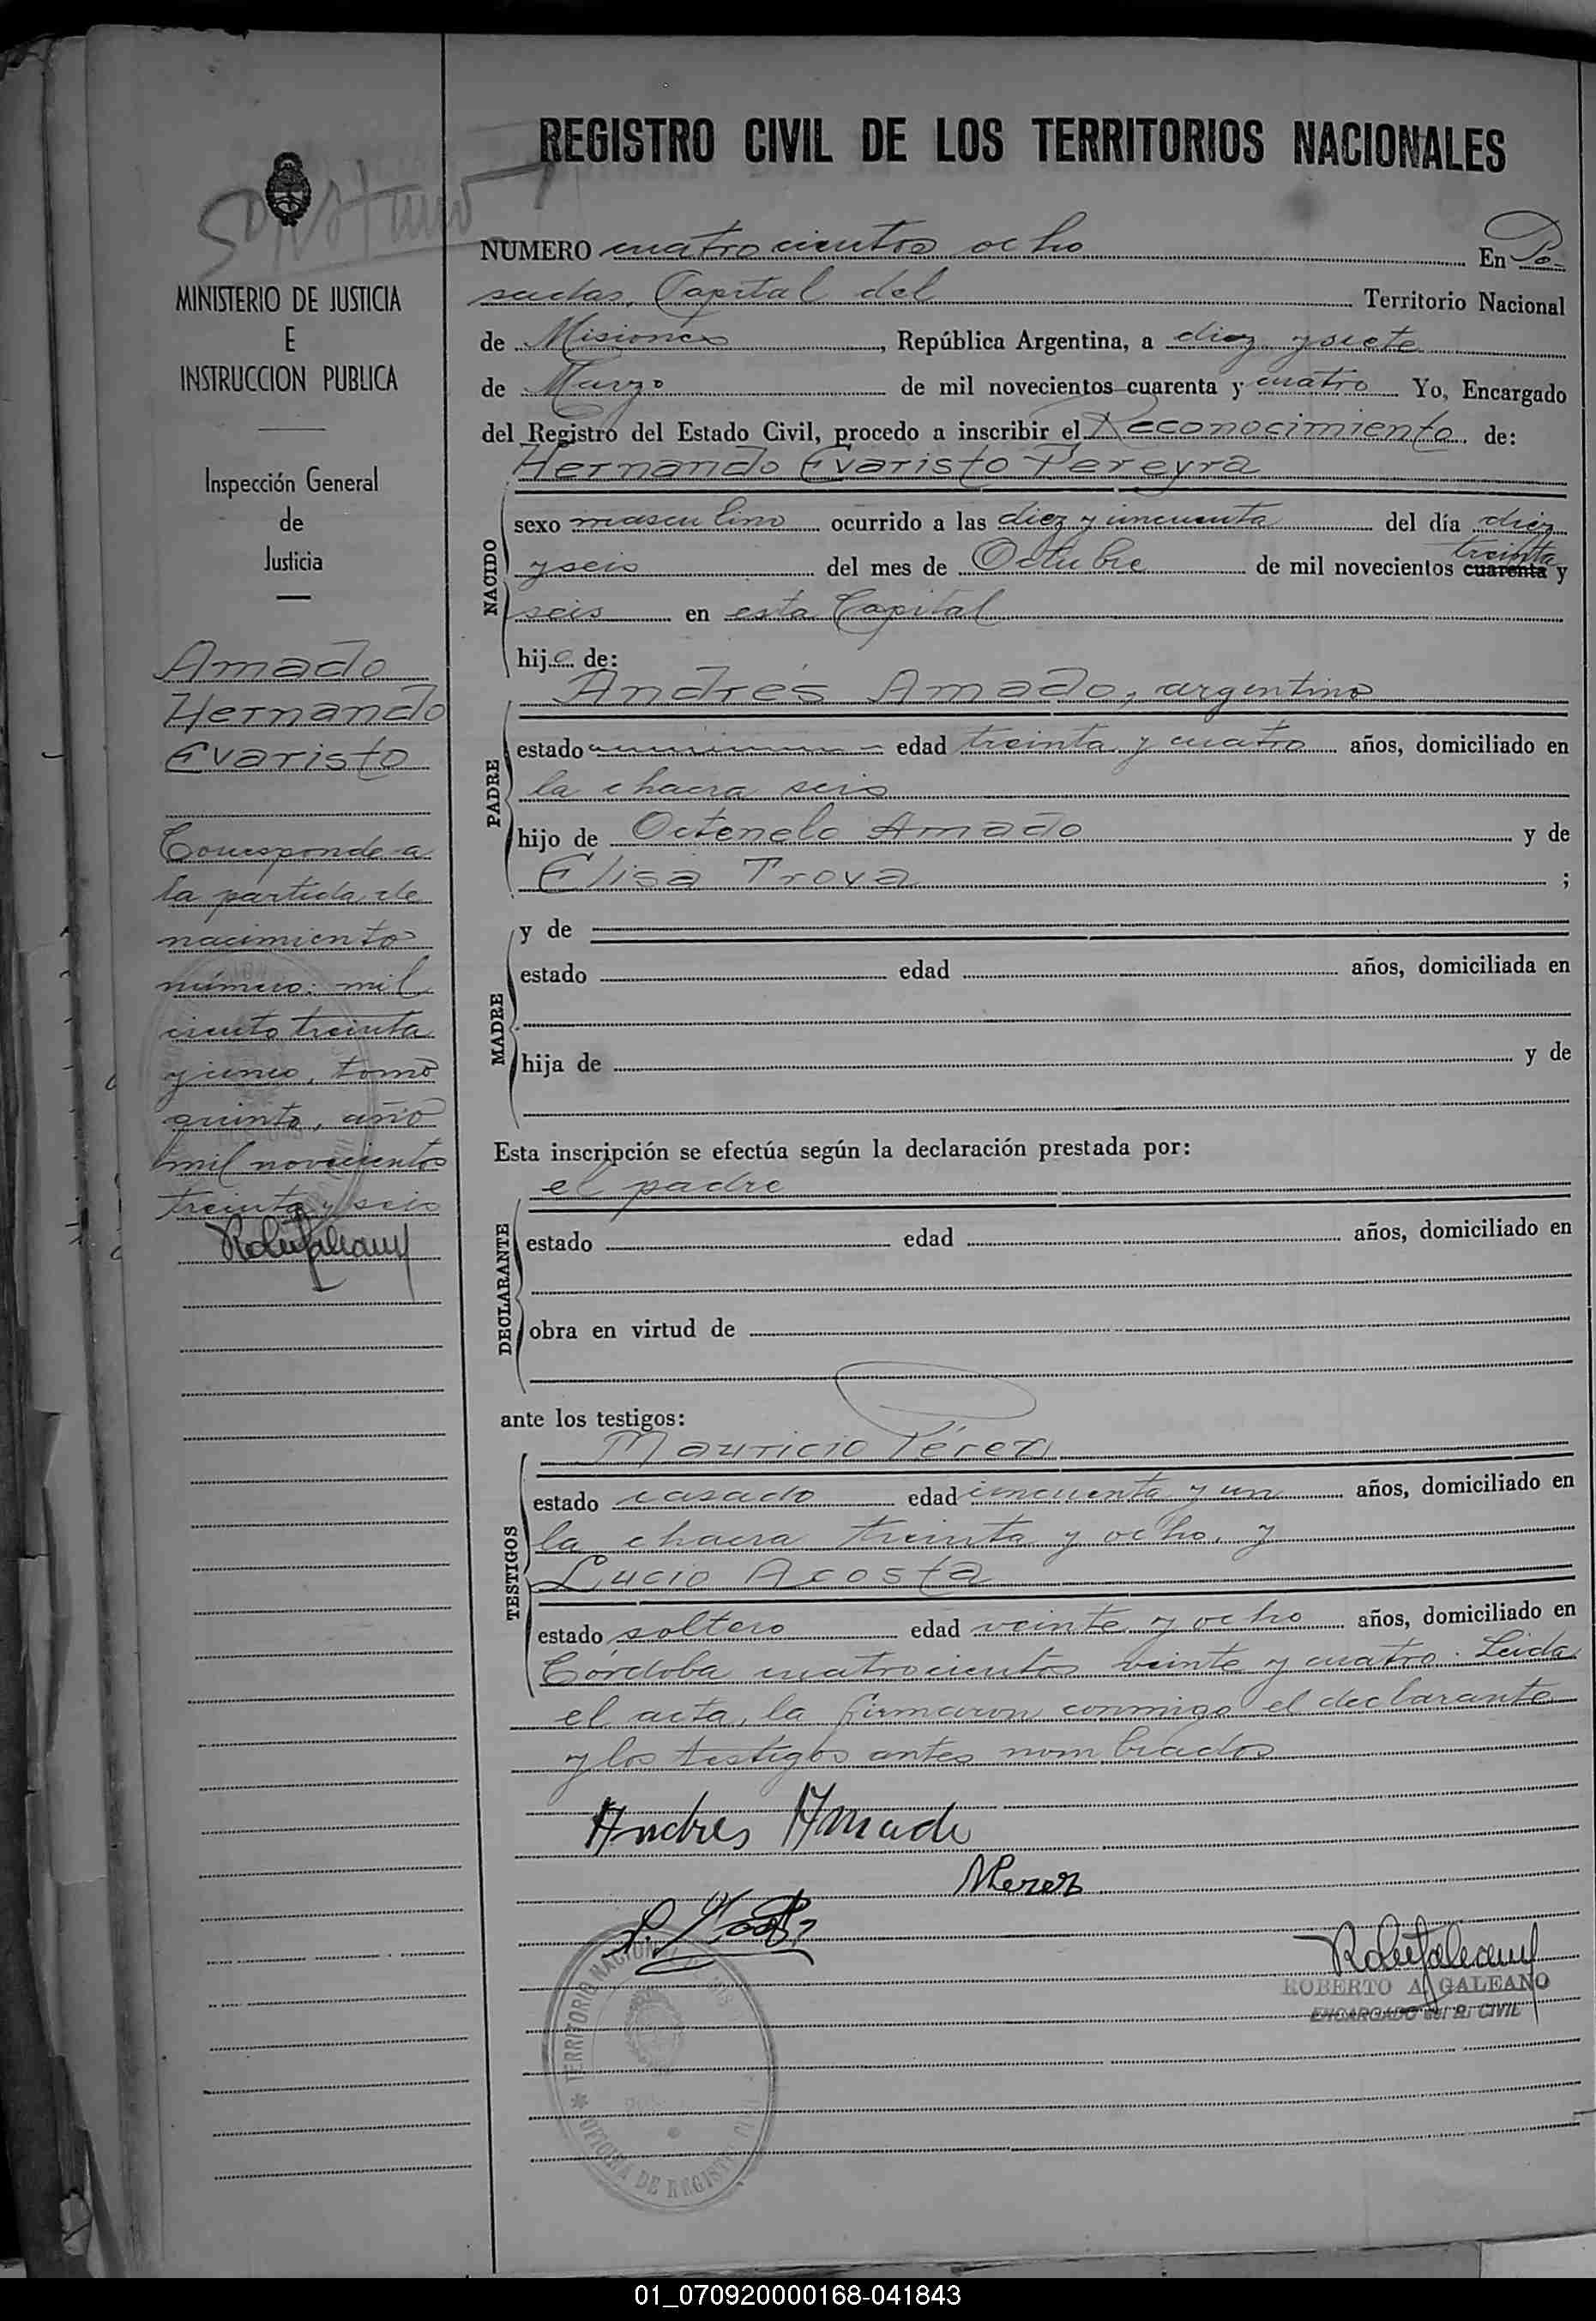 REGISTRO CIVIL DE LOS TERRITORIOS NACIONALES
MINISTERIO DE JUSTICIA
E
INSTRUCCION PUBLICA
Inspección General
de
Justicia
Amado
Hernando
Evaristo
Corresponde a
la partida de
nacimiento
número: mil
ciento treinta
y cinco, tomo
quinto, año
mil novecientos
treinta y seis
NUMERO cuatrocientos ocho En Po-
sadas, Capital del Territorio Nacional
de Misiones, República Argentina, a diez y siete
de Marzo de mil novecientos cuarenta y cuatro Yo, Encargado
del Registro del Estado Civil, procedo a inscribir el Reconocimiento de:
Hernando Evaristo Pereyra
NACIDO
sexo masculino ocurrido a las diez y cincuenta del día diez
treinta
y seis del mes de Octubre de mil novecientos cuarenta y
seis en esta Capital
hijo de:
Andrés Amado, argentino
PADRE
estado edad treinta y cuatro años, domiciliado en
la chacra seis
hijo de Octenelo Amado y de
Elisa Troya ;
MADRE
y de
estado edad años, domiciliada en
hija de y de
Esta inscripción se efectúa según la declaración prestada por:
el padre
DECLARANTE
estado edad años, domiciliado en
obra en virtud de
ante los testigos:
Mauricio Pérez
TESTIGOS
estado casado edad cincuenta y un años, domiciliado en
la chacra treinta y ocho, y
Lucio Acosta
estado soltero edad veinte y ocho años, domiciliado en
Córdoba cuatrocientos veinte y cuatro. Leida
el acta, la firmaron conmigo el declarante
y los testigos antes nombrados
Andres Amado
MPerez
ROBERTO A. GALEANO
ENCARGADO del R. CIVIL
TERRITORIO NACIONAL DE MIS
OFICINA DE REGISTRO CIVIL
01_070920000168-041843